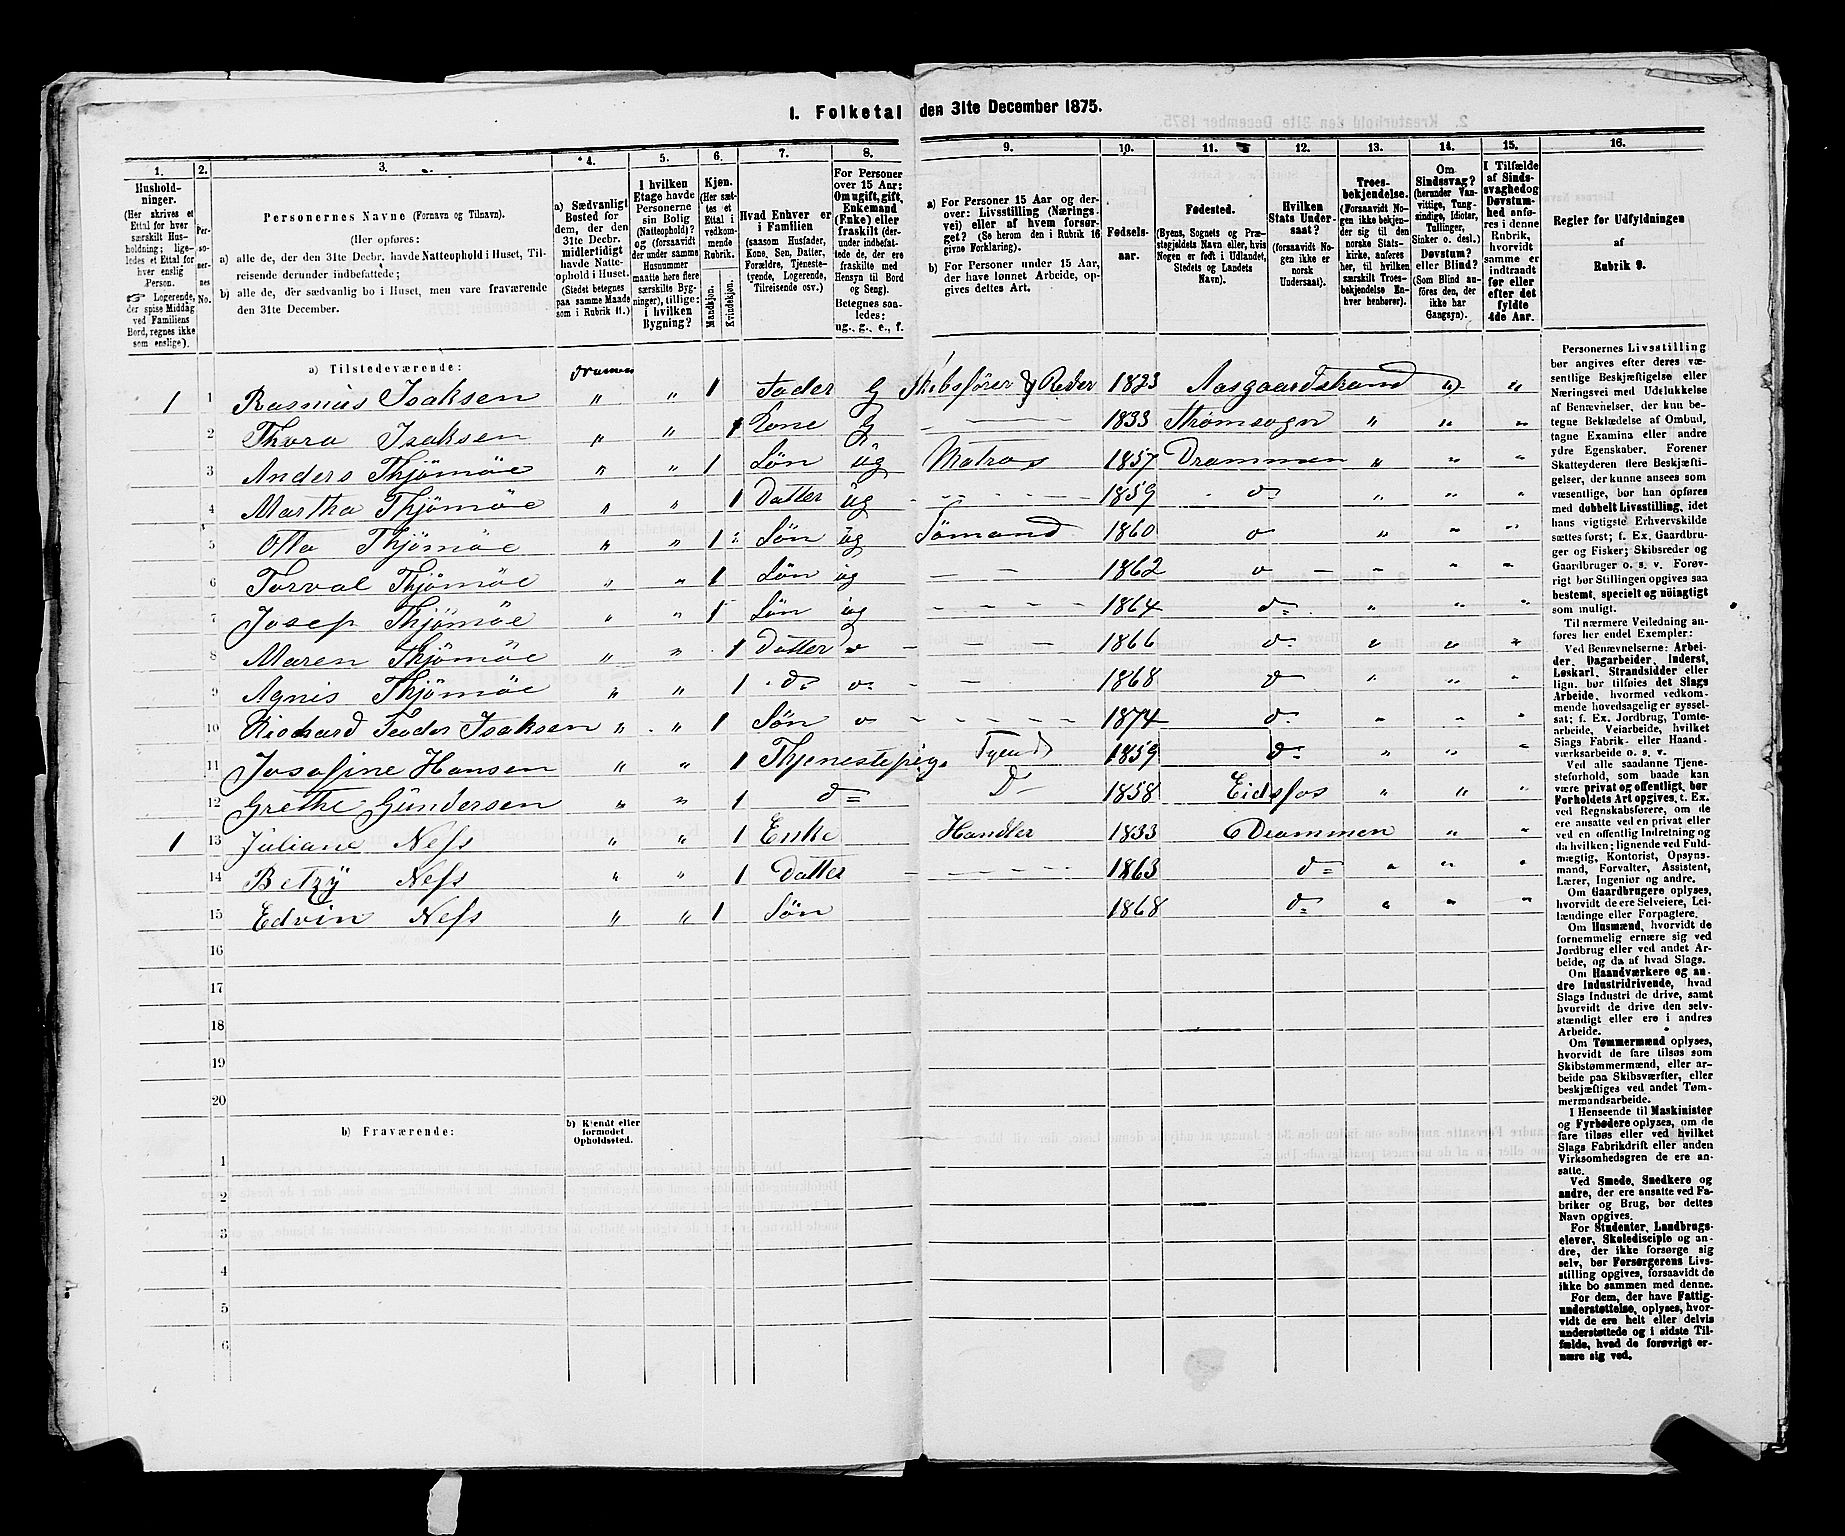 1. Folketal den 31te December 1875.
1. 2. 3. 4. 5. 6. 7. 8. 9. 10. 11. 12. 13. 14. 15. 16.
Hushold-
ninger.
(Her skrives et
Ettal for hver
særskilt Hus-
holdning; lige-
ledes et Ettal for
hver enslig
Person.
☞ Logerende,
der spise Middag
ved Familiens
Bord, regnes ikke
som enslige).
Per-
so-
ner-
nes
No.
Personernes Navne (Fornavn og Tilnavn).
(Her opføres:
a) alle de, der den 31te Decbr. havde Natteophold i Huset, Til-
reisende derunder indbefattede;
b) alle de, der sædvanlig bo i Huset, men vare fraværende
den 31te December.
a) Sædvanligt
Bosted for
dem, der den
31te Decbr.
midlertidigt
havde Natte-
ophold i Huset.
(Stedet betegnes
paa samme Maade
som i Rubrik 11.)
I hvilken
Etage havde
Personerne
sin Bolig
(Natteophold)?
og (forsaavidt
der under samme
Husnummer
maatte være flere
særskilte Byg-
ninger), tillige:
i hvilken
Bygning?
Kjøn.
(Her sæt-
tes et
Ettal i
vedkom-
mende
Rubrik.
Mandkjøn.
Kvindekjøn.
Hvad Enhver er
i Familien
(saasom Husfader,
Kone, Søn, Datter,
Forældre, Tjeneste-
tyende, Logerende,
Tilreisende osv.)
For Personer
over 15 Aar:
Om ugift, gift,
Enkemand
(Enke) eller
fraskilt (der-
under indbefat-
tede de, der ere
fraskilte med
Hensyn til Bord
og Seng).
Betegnes saa-
ledes:
ug., g., e., f.
a) For Personer 15 Aar og der-
over: Livsstilling (Nærings-
vei) eller af hvem forsør-
get? (Se herom den i Rubrik 16
givne Forklaring).
b) For Personer under 15 Aar,
der have lønnet Arbeide, op-
gives dettes Art.
Fødsels-
aar.
Fødested.
(Byens, Sognets og Præ-
stegjeldets Navn eller, hvis
Nogen er født i Udlandet,
Stedets og Landets
Navn).
Hvilken
Stats Under-
saat?
(forsaavidt No-
gen ikke er
norsk
Undersaat).
Troes-
bekjendelse.
(Forsaavidt No-
gen ikke bekjen-
der sig til den
norske Stats-
kirke, anføres
her, til hvilken
særskilt Troes-
bekjendelse En-
hver benhører).
Om
Sindssvag?
(herunder Van-
vittige, Tung-
sindige, Idioter,
Tullinger,
Sinker o. desl.)
Døvstum?
eller Blind?
(Som Blind an-
føres den, der
ikke har
Gangsyn).
I Tilfælde
af Sinds-
svaghed og
Døvstum-
hed anfø-
res i denne
Rubrik,
hvorvidt
samme er
indtraadt
før eller
efter det
fyldte
4de Aar.
Regler for Udfyldningen
af
Rubrik 9.
a) Tilstedeværende: Drammen
1 1 Rasmus Isaksen " " 1 Fader G Skibsfører & Reder 1823 Aasgaardstrand " "
2 Thora Isaksen " " 1 Kone G 1833 Strømsogn " " "
3 Anders Thjømøe " " 1 Søn ug Matros 1857 Drammen " " "
4 Martha Thjømøe " " 1 Datter ug 1859 do " " "
5 Otto Thjømøe " " 1 Søn ug Sømand 1860 o " " "
6 Torval Thjømøe " " 1 Søn ug 1862 o " " "
7 Josep Thjømøe " " 1 Søn ug 1864 do " " "
8 Maren Thjømøe " " 1 Datter o 1866 do " " "
9 Agnis Thjømøe " " 1 do o 1868 do " " "
10 Richard Teoder Isaksen " " 1 Søn o 1874 do " " "
11 Josefine Hansen " " 1 Thjenestepig. Tyende 1859 do " " "
12 Grethe Gündersen " " 1 do Do 1858 Eidsfos " " "
1 13 Juliane Nefs " " 1 Enke Handler 1833 Drammen " "
14 Betzÿ Nefs " " 1 Datter 1863 do " " "
15 Edvin Nefs " " 1 Søn 1868 do " " "
16
17
18
19
20
b) Fraværende:
b) Kjendt eller
formodet
Opholdssted.
1
2
3
4
5
6
Personernes Livsstilling
bør angives efter deres væ-
sentlige Beskjæftigelse eller
Næringsvei med Udelukkelse
af Benævnelser, der kun be-
tegne Beklædelse af Ombud,
tagne Examina eller andre
ydre Egenskaber. Forener
Skatteyderen flere Beskjæfti-
gelser, der kunne ansees som
væsentlige, bør han opføres
med dobbelt Livsstilling, idet
hans vigtigste Erhvervskilde
sættes først; f. Ex. Gaardbru-
ger og Fisker; Skibsreder og
Gaardbruger o. s. v. Forøv-
rigt bør Stillingen opgives saa
bestemt, specielt og nöiagtigt
som muligt.
Til nærmere Veiledning an-
føres her endel Exempler:
Ved Benævnelserne: Arbei-
der, Dagarbeider, Inderst,
Løskarl, Strandsidder eller
lign. bør tilføies det Slags
Arbeide, hvormed vedkom-
mende hovedsagelig er syssel-
sat; f. Ex. Jordbrug, Tomte-
arbeide, Veiarbeide, hvilket
Slags Fabrik- eller Haand-
værksarbeide o. s. v.
Ved alle saadanne Tjene-
steforhold, som baade kan
være privat og offentligt, bør
Forholdets Art opgives, t. Ex.
ved Regnskabsførere, om de
ere ansatte ved en privat eller
ved en offentlig Indretning og
da hvilken; lignende ved Fuld-
mægtig, Kontorist, Opsyns-
mand, Forvalter, Assistent,
Lærer, Ingeniør og andre.
Om Gaardbrugere oplyses,
hvorvidt de ere Selveiere, Lei-
lændinge eller Forpagtere.
Om Husmænd, hvorvidt de
fornemmelig ernære sig ved
Jordbrug eller ved andet Ar-
beide, og da af hvad Slags.
Om Haandværkere og an-
dre Industridrivende, hvad
Slags Industri de drive, samt
hvorvidt de drive den selv-
stændigt eller ere i andres
Arbeide.
Om Tømmermænd oplyses,
hvorvidt de fare tilsøs som
Skibstømmermænd, eller ar-
beide paa Skibsværfter, eller
beskjæftiges ved andet Tøm-
mermandsarbeide.
I Henseende til Maskinister
og Fyrbødere oplyses, om de
fare tilsøs eller ved hvilket
Slags Fabrikdrift eller anden
Virksomhedsgren de ere an-
satte.
Ved Smede, Snedkere og
andre, der ere ansatte ved Fa-
briker og Brug, bør dettes
Navn opgives.
For Studenter, Landbrugs-
elever, Skoledisciple og an-
dre, der ikke forsørge sig
selv, bør Forsørgerens Livs-
stilling opgives, forsaavidt de
ikke bo sammen med denne.
For dem, der have Fattig-
understøttelse, oplyses, hvor-
vidt de ere helt eller delvis
understøttede og i sidste Til-
fælde, hvad de forøvrigt er-
nære sig ved.